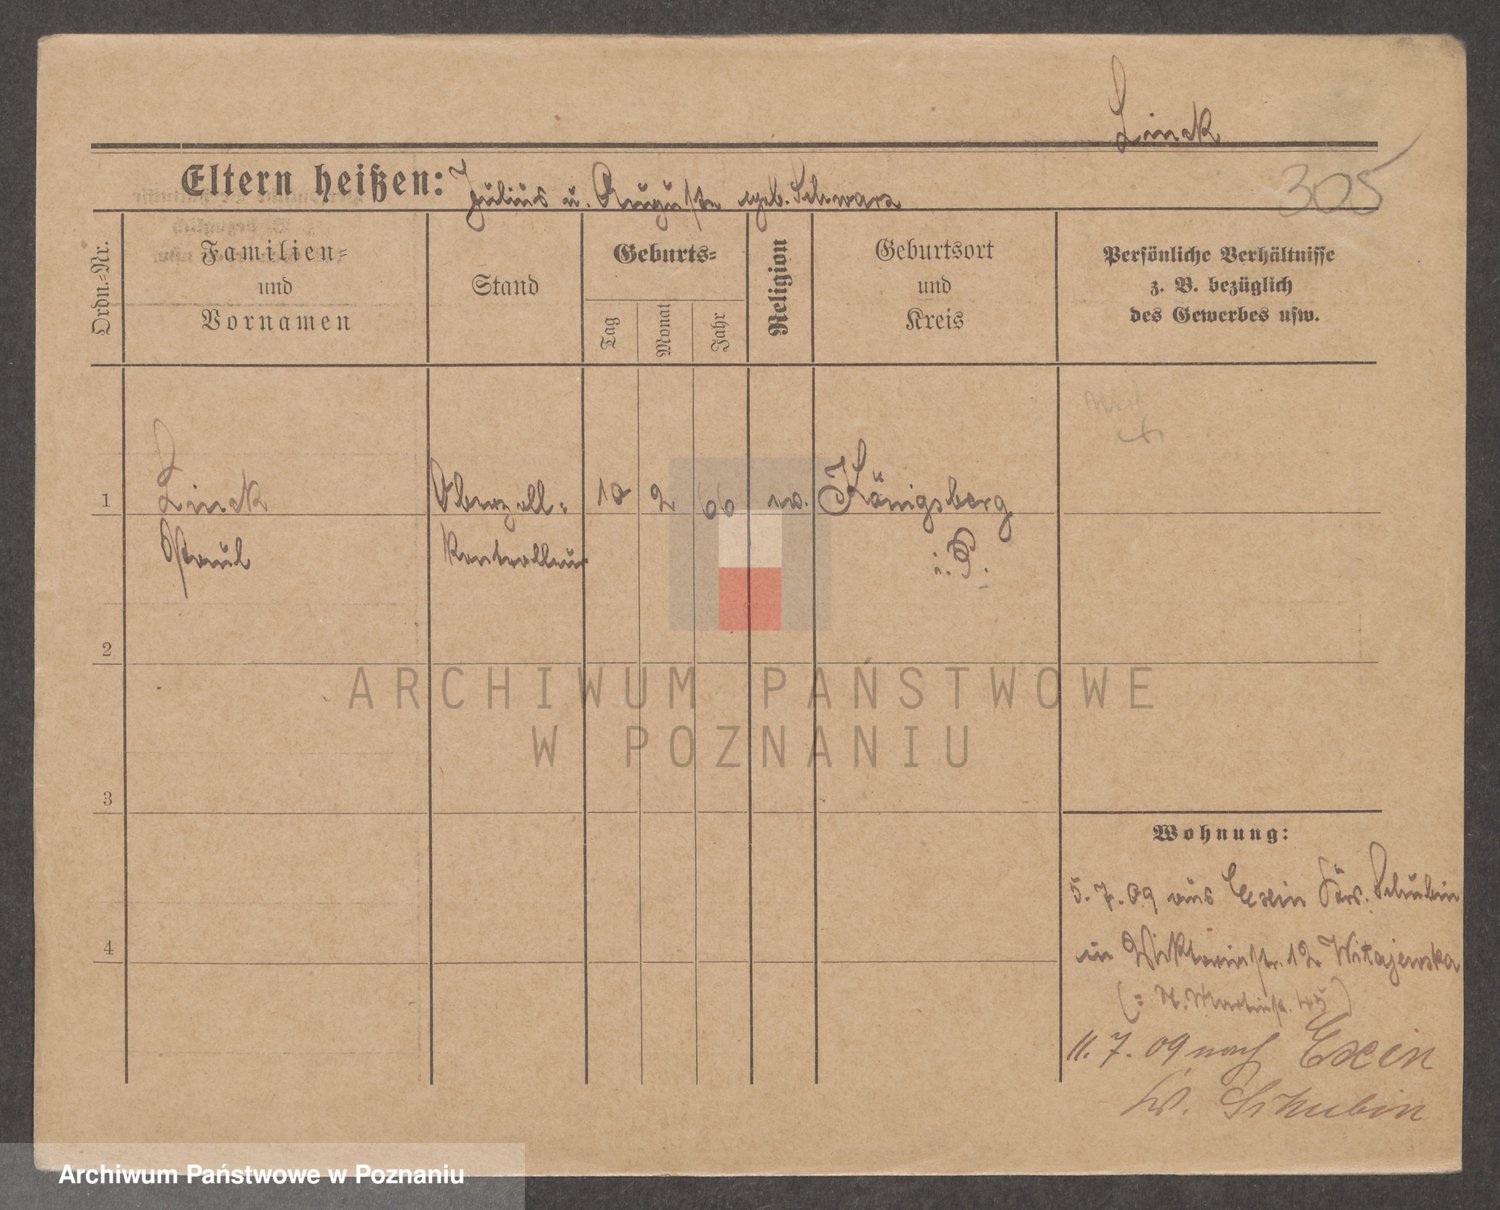 Linck
305
Eltern heißen: Julius u. Auguste geb. Schwarz
Ordn.-Nr.
Familien-
und
Vornamen
Stand
Geburts-
Tag
Monat
Jahr
Religion
Geburtsort
und
Kreis
Persönliche Verhältnisse
z. B. bezüglich
des Gewerbes usw.
1
Linck
Paul
Oberzoll-
kontrolleur
10
2
66
ev.
Königsberg
i. P.
2
3
4
Wohnung:
5. 7. 09 aus Exin Krs. Schubin
in Viktoriastr. 12 Witajewska
(= St. Martinstr. 45)
11. 7. 09 nach Exin
Kr. Schubin
ARCHIWUM PAŃSTWOWE
W POZNANIU
Archiwum Państwowe w Poznaniu